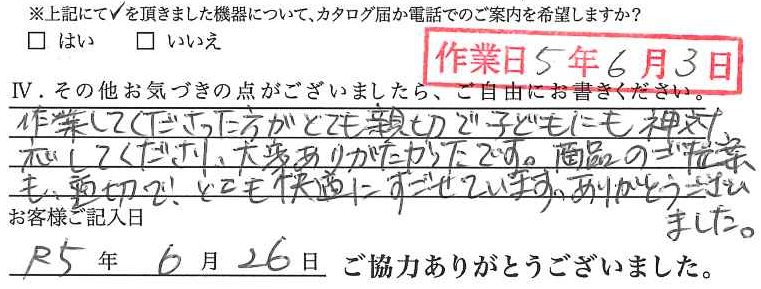 ※上記にて✓を頂きました機器について、カタログ届か電話でのご案内を希望しますか?
□ はい □ いいえ
作業日 5年6月3日
Ⅳ．その他お気づきの点がございましたら、ご自由にお書きください。
作業してくださった方がとても親切で子どもにも神対
応してくださり、大変ありがたかったです。商品のご提案
も、適切で、とても快適にすごせています。ありがとうござい
ました。
お客様ご記入日
R5年 6月 26日 ご協力ありがとうございました。